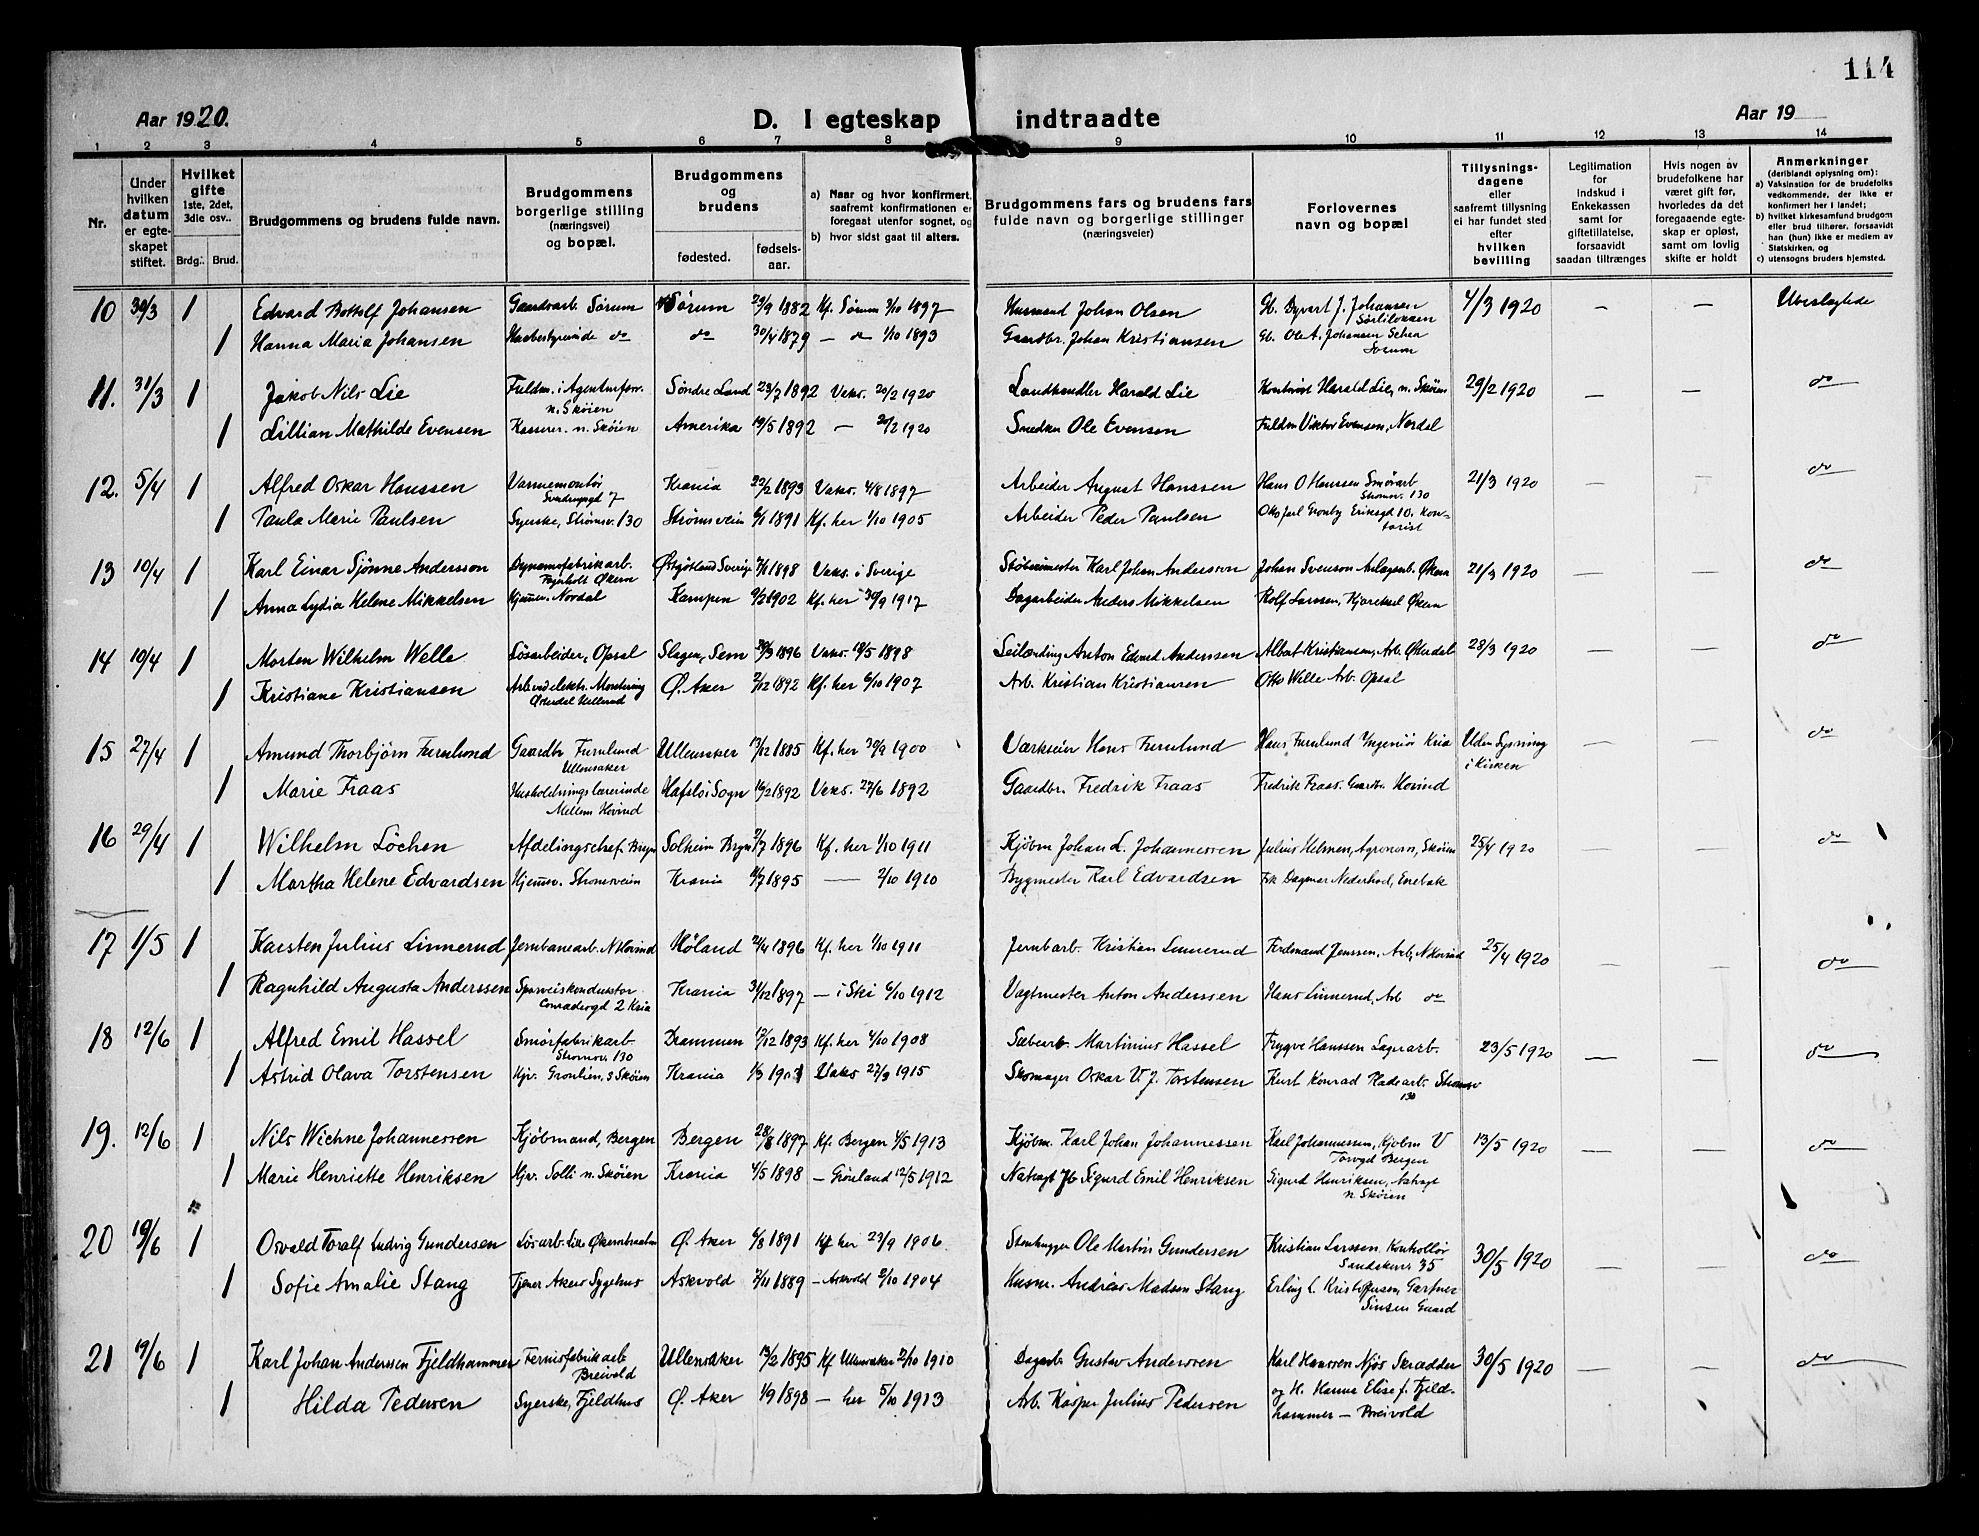 114
Aar 1920.
D. I egteskap indtraadte
Aar 19
1 2 3 4 5 6 7 8 9 10 11 12 13 14
Nr.
Under hvilken datum er egte-skapet stiftet.
Hvilket gifte 1ste, 2det, 3die osv..
Brdg.. Brud.
Brudgommens og brudens fulde navn.
Brudgommens borgerlige stilling (næringsvei) og bopæl.
Brudgommens og brudens
fødested. fødsels-aar.
a) Naar og hvor konfirmert, saafremt konfirmationen er foregaat utenfor sognet, og
b) hvor sidst gaat til alters.
Brudgommens fars og brudens fars fulde navn og borgerlige stillinger (næringsveier)
Forlovernes navn og bopæl
Tillysnings-dagene eller saafremt tillysning ei har fundet sted efter hvilken bevilling
Legitimation for indskud i Enkekassen samt for giftetillatelse, forsaavidt saadan tiltrænges
Hvis nogen av brudefolkene har været gift før, hvorledes da det foregaaende egte-skap er opløst, samt om lovlig skifte er holdt
Anmerkninger (deriblandt oplysning om):
a) Vaksination for de brudefolks vedkommende, der ikke er konfirmert her i landet;
b) hvilket kirkesamfund brudgom eller brud tilhører, forsaavidt han (hun) ikke er medlem av Statskirken, og
c) utensogns bruders hjemsted.
10 30/3 1 Edvard Bottolf Johansen Gaardsarb. Sørum Sørum 29/9 1882 Kf. Sørum 3/10 1897 Husmand Johan Olsen Gb. Dyvart J. Johansen Sørlilokken 4/3 1920 — — Ubeslegtede
1 Hanna Maria Johansen Husbestyrerinde do do 30/4 1879 — do 1/10 1893 Gaardbr. Johan Kristiansen Gb. Ole A. Johansen Sørum
11. 31/3 1 Jakob Nils Lie Fuldm. i Agenturforr. n. Skøien Søndre Land 23/7 1892 Vaks. 20/2 1920 Landhandler Harald Lie Kontorist Harald Lie, n. Skøien 29/2 1920 — — do
1 Lillian Mathilde Evensen Kasserer. n. Skøien Amerika 19/5 1892 — 21/2 1920 Snedker Ole Evensen Fuldm Viktor Evensen, Nordal
12. 5/4 1 Alfred Oskar Hanssen Varmemontør 7 Krania 22/2 1893 Vaks. 4/8 1897 Arbeider August Hanssen Hans O Hanssen Smørarb Strømsv. 130 21/3 1920 — — do
1 Paula Marie Paulsen Syerske, Strømsv. 130 Strømsveien 6/1 1891 Kf. her 1/10 1905 Arbeider Peder Paulsen Otto Jarl Gronby Eriksgd 10. Kontorist
13 10/4 1 Karl Einar Sjønne Andersson Dynamofabrikarb. Økern Østgötland Sverige 7/11 1898 Vaks. i Sverige Støberimester Karl Johan Andersson Johan Svenson Anlægsarb. Økern 21/3 1920 — — do
1 Anna Lydia Helene Mikkelsen Hjemmev. Nordal Kampen 9/2 1902 Kf. her 30/9 1917 Dagarbeider Anders Mikkelsen Rolf Larssen, Økern
14 10/4 1 Morten Wilhelm Welle Løsarbeider, Opsal Slagen, Sem 30/3 1896 Vaks. 18/5 1898 Anton Edvard Anderssen Albert Kristiansen, Arb. Østerdal 28/3 1920 — — do
1 Kristiane Kristiansen Arb. ved elektr. Montering Østerdal Hellerud Ø. Aker 2/12 1892 Kf. her 6/10 1907 Arb. Kristian Kristiansen Otto Welle Arb. Opsal
15 27/4 1 Amund Thorbjørn Furulund Gaardbr Furulund Ullensaker Ullensaker 13/12 1885 Kf. her 30/9 1900 Værkseier Hans Furulund Hans Furulund Ingeniør Kria Uden Lysning i Kirken — — do
1 Marie Fraas Husholdningslærerinde Mellem Hovind Hafslo i Sogn 16/2 1892 Vaks. 27/6 1892 Gaardbr. Fredrik Fraas Fredrik Fraas. Gaardbr. Hovind
16 29/4 1 Wilhelm Löchen Afdelingschef. Bryn Solheim Bryn 2/7 1896 Kf. her 1/10 1911 Kjøbm Johan L. Johannessen Julius Helmen, Agronom, Skøien 25/4 1920 — — do
1 Martha Helene Edvardsen Hjemmev. Strømsveien Krania 11/7 1895 — 2/10 1910 Bygmester Karl Edvardsen Frk Dagmar Nederhod, Enebak
17 1/5 1 Karsten Julius Linnerud Jernbanearb. N Hovind Høland 21/4 1896 Kf. her 1/10 1911 Jernbarb. Kristian Linnerud Ferdinand Jenssen, Arb. N Hovind 25/4 1920 — — do
1 Ragnhild Augusta Anderssen Sporveiskonduktør Conradisgd 2 Kria Krania 31/12 1897 — i Ski 6/10 1912 Vagtmester Anton Anderssen Hans Linnerud, Arb do
18 12/6 1 Alfred Emil Hassel Smørfabrikarb. Strømsv. 130 Drammen 17/12 1893 Kf. her 4/10 1908 Martinius Hassel Trygve Hanssen Lagerarb. 23/5 1920 — — do
1 Astrid Olava Torstensen Hjv. Gronlien, 3 Skøien Krania 1/3 1901 Vaks 27/9 1915 Skomager Oskar V. J. Torstensen Kurt Konrad Pladearb. Strømsv 130
19. 12/6 1 Nils Wichne Johannessen Kjøbmand, Bergen Bergen 28/8 1897 Kf. Bergen 4/5 1913 Kjøbm. Karl Johan Johannessen Karl Johannessen, Kjøbm V Torvgd Bergen 13/5 1920 — — do
1 Marie Henriette Henriksen Hjv. Solli n. Skøien Krania 4/5 1898 — Grønland 12/5 1912 Natvagt Jb Sigurd Emil Henriksen Sigurd Henriksen, Natvagt n Skøien
20 19/6 1 Osvald Toralf Ludvig Gundersen Løsarb. Ø. Aker 6/8 1891 Kf her 23/9 1906 Stenhugger Ole Martin Gundersen Kristian Larssen, Kontrollør 35 30/5 1920 — — do
1 Sofie Amalie Stang Tjener Akers Sygehus Askvold 7/11 1889 — Askvold 2/10 1904 Husm. Andreas Madsen Stang Erling L. Kristoffersen, Gartner Sinsen Gaard
21 19/6 1 Karl Johan Anderssen Fjeldhammer Fernisfabrikarb Breivold Ullensaker 13/2 1895 Kf Ullensaker 2/10 1910 Dagarb Gustav Anderssen Karl Hanssen Njøs Skrædder 30/5 1920 — — do
1 Hilda Pedersen Syerske, Fjeldhus Ø. Aker 1/9 1898 — her 5/10 1913 Arb. Kasper Julius Pedersen og H. Hanna Elise f. Fjeldhammer — Breivold